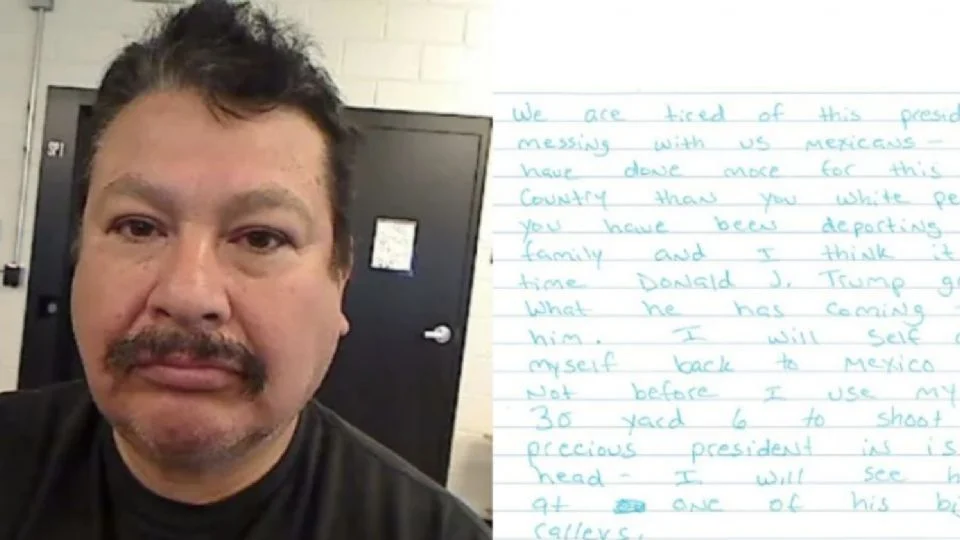 SP1
We are tired of this presid
messing with us mexicans -
have done more for this
Country than you white pe
you have been deporting
family and I think it
time Donald J. Trump g
What he has coming
him. I will self d
myself back to Mexico
Not before I use my
30 yard 6 to shoot
precious president in is
head - I will see h
at one of his bi
rallers.